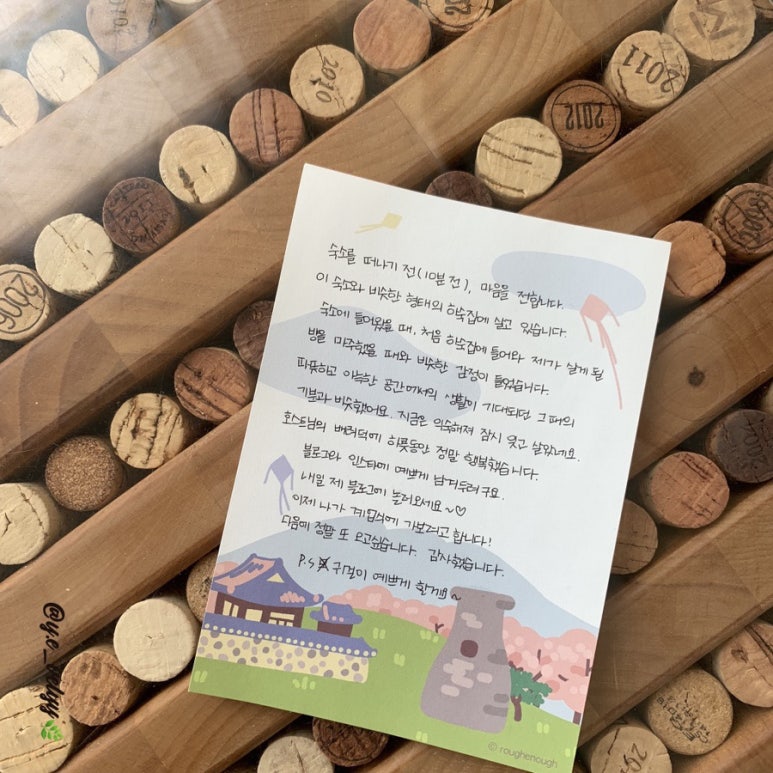 숙소를 떠나기 전(10분 전), 마음을 전합니다.
이 숙소와 비슷한 형태의 하숙집에 살고 있습니다.
숙소에 들어왔을 때, 처음 하숙집에 들어와 제가 살게 될
방을 마주했을 때와 비슷한 감정이 들었습니다.
따뜻하고 아늑한 공간에서의 생활이 기대되던 그때의
기분과 비슷했어요. 지금은 익숙해져 잠시 잊고 살았네요.
호스트님의 배려덕에 하룻동안 정말 행복했습니다.
블로그와 인스타에 예쁘게 남겨두려구요.
내일 제 블로그에 놀러오세요~♡
이제 나가 계림숲에 가보려고 합니다!
다음에 정말 또 오고싶습니다. 감사했습니다.
P.S 귀걸이 예쁘게 할게요~
© roughenough
2010
2011
2012
2006